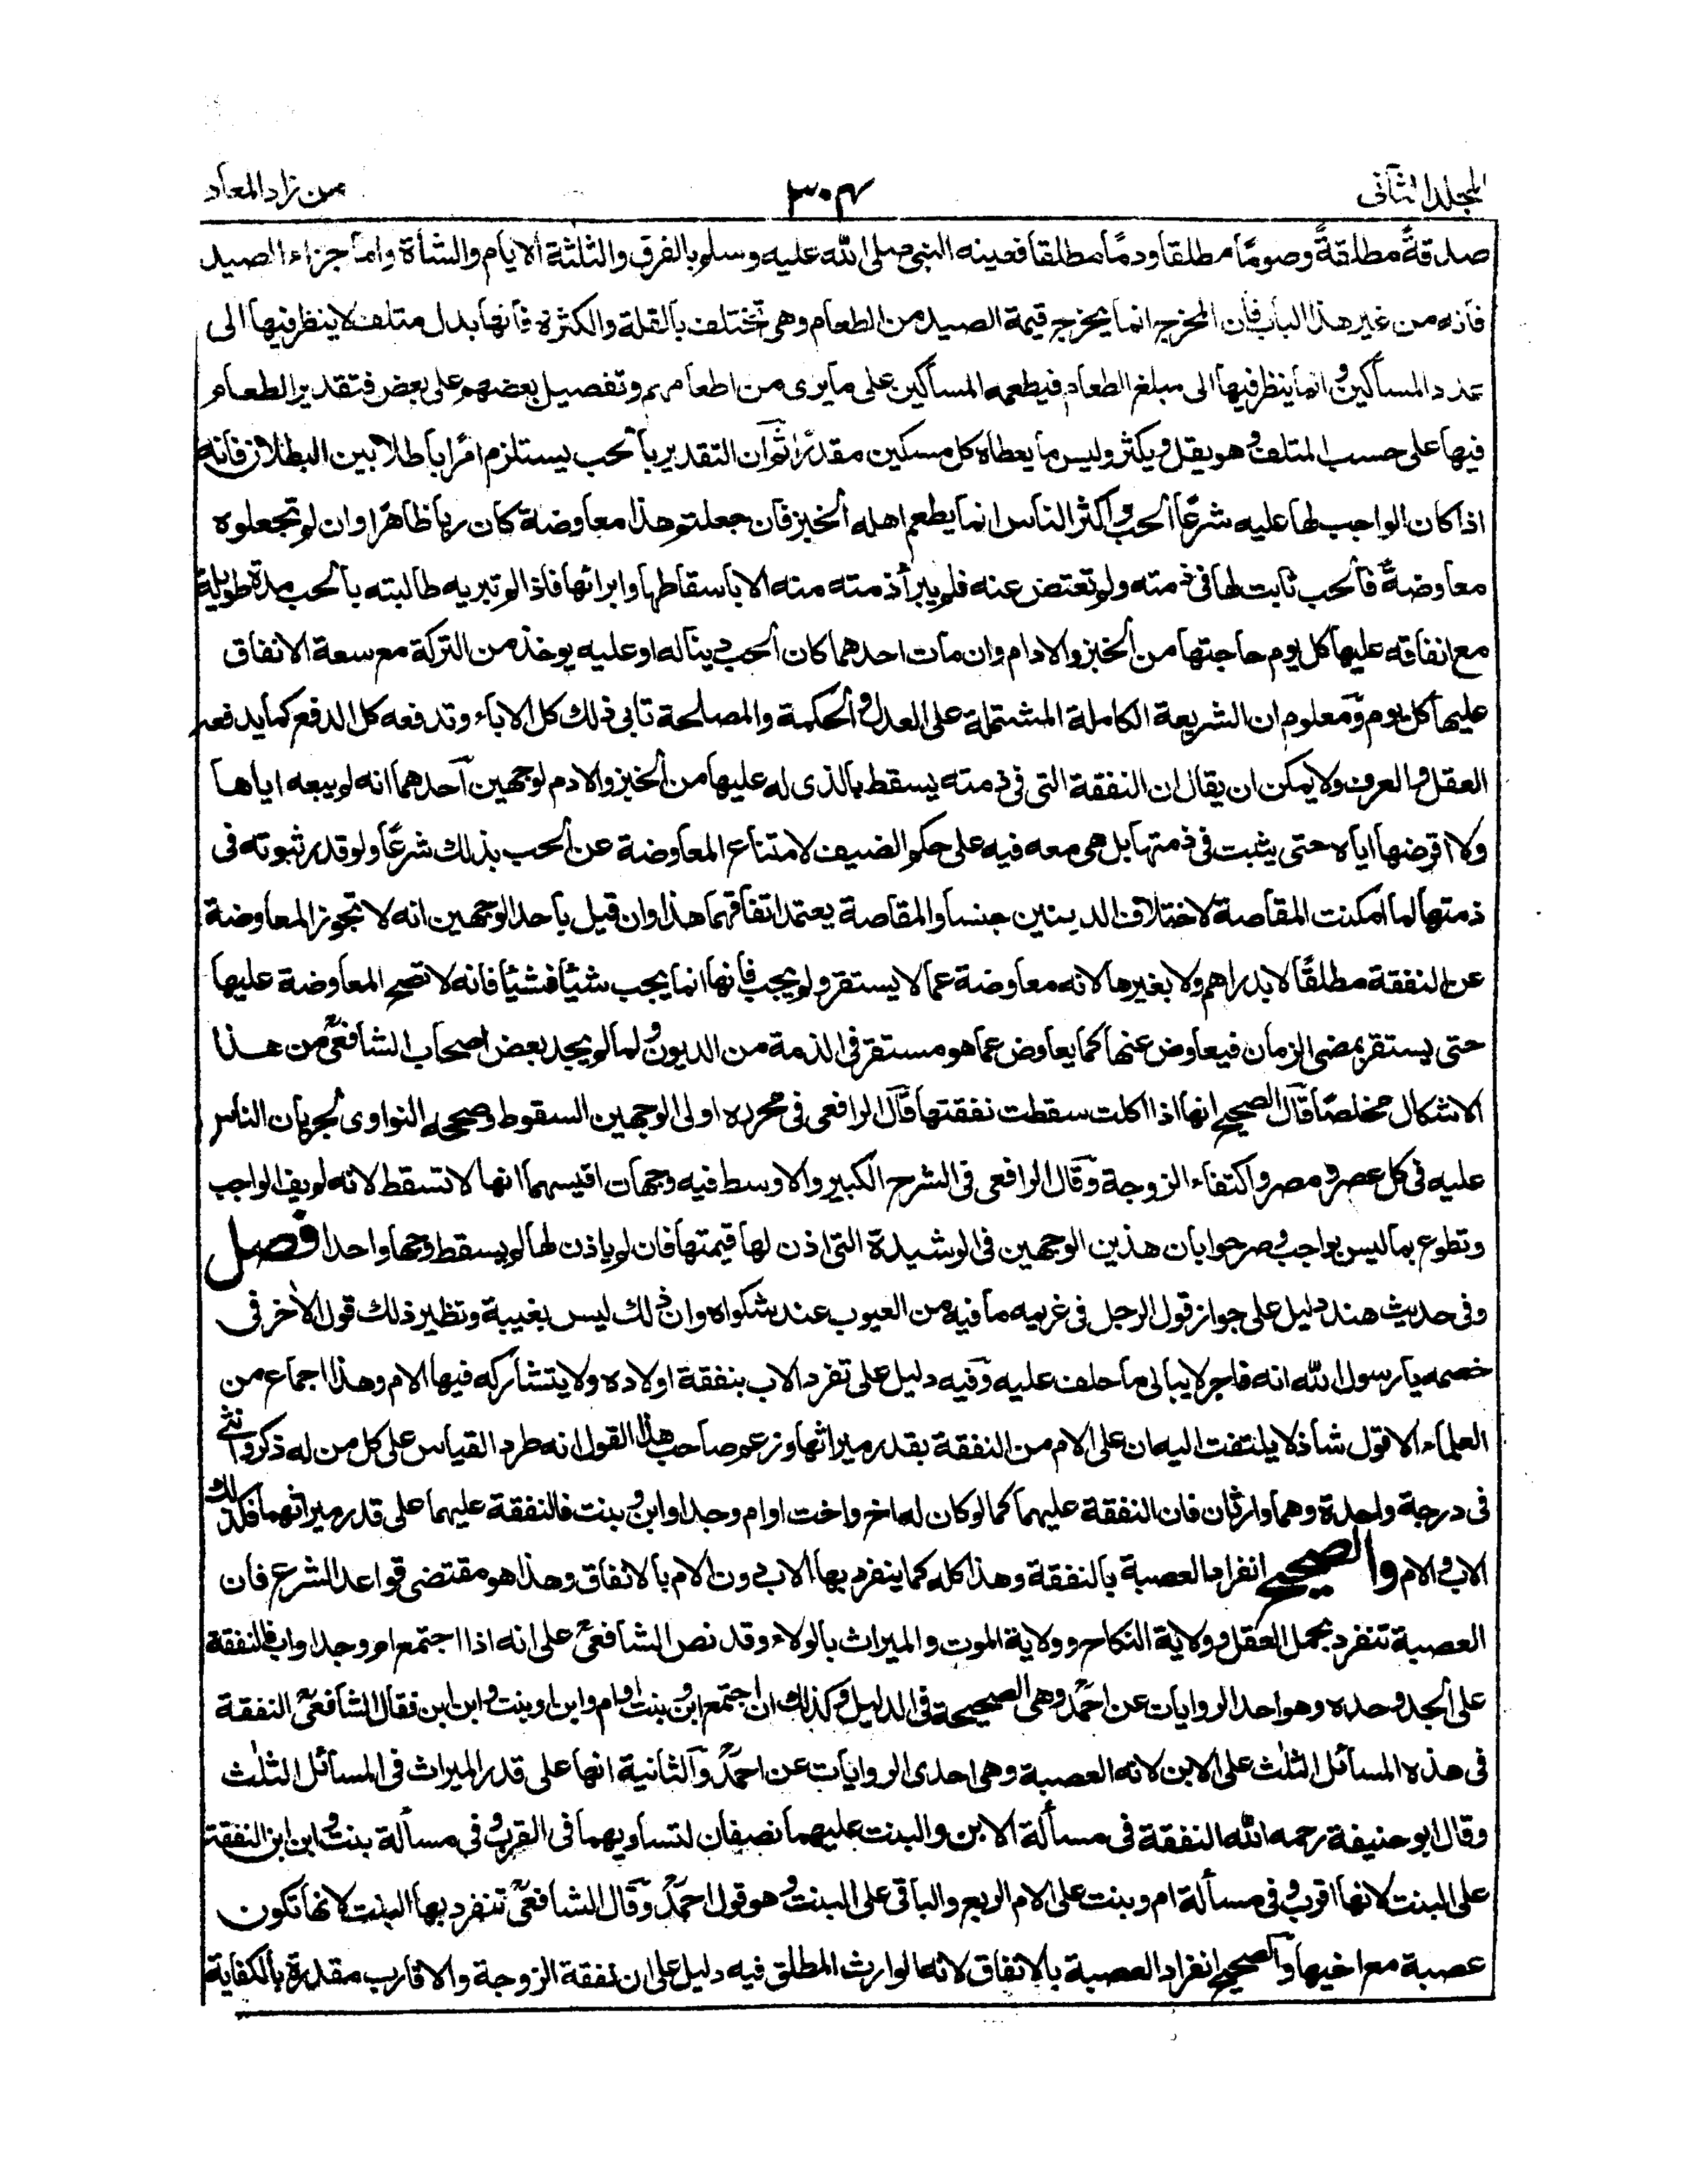 المجلد الثانى
٣٠٤
من زاد المعاد
صدقةً مطلقةً وصومًا مطلقا ودمًا مطلقا فعينه النبى صلى الله عليه وسلم بالفرق والثلثة الايام والشاة واما جزاء الصيد
فانه من غير هذا الباب فان المخرج انما يخرج قيمة الصيد من الطعام وهى تختلف بالقلة والكثرة فانها بدل متلف لا ينظر فيها الى
عدد المساكين و انما ينظر فيها الى مبلغ الطعام فيطعمه المساكين على ما يرى من اطعامهم وتفصيل بعضهم على بعض فتقدير الطعام
فيها على حسب المتلف و هو يقل و يكثر وليس ما يعطاه كل مسكين مقدرًا ثم ان التقدير بالحب يستلزم امرًا باطلا بين البطلان فانه
اذا كان الواجب لها عليه شرعًا الحب و اكثر الناس انما يطعم اهله الخبز فان جعلتم هذا معاوضة كان ربا ظاهرًا وان لم تجعلوه
معاوضةً فالحب ثابت لها فى ذمته ولم تعتض عنه فلم يبرأ ذمته منه الا باسقاطها وابرائها فاذا لم تبريه طالبته بالحب مدة طويلة
مع انفاقه عليها كل يوم حاجتها من الخبز والادام وان مات احدهما كان الحب دينا له او عليه يوخذ من التركة مع سعة الانفاق
عليها كل يوم ومعلوم ان الشريعة الكاملة المشتملة على العدل و الحكمة والمصلحة تابى ذلك كل الاباء وتدفعه كل الدفع كما يدفعه
العقل و العرف ولا يمكن ان يقال ان النفقة التى فى ذمته يسقط بالذى له عليها من الخبز والادم لوجهين احدهما انه لم يبعه اياها
ولا اقرضها اياه حتى يثبت فى ذمتها بل هى معه فيه على حكم الضيف لامتناع المعاوضة عن الحب بذلك شرعًا ولو قدر ثبوته فى
ذمتها لما امكنت المقاصة لاختلاف الدينين جنسا والمقاصة يعتمد اتفاقهما هذا وان قيل باحد الوجهين انه لا تجوز المعاوضة
عن النفقة مطلقًا لا بدراهم ولا بغيرها لانه معاوضة عما لا يستقر ولم يجب فانها انما يجب شيأ فشيأ فانه لا تصح المعاوضة عليها
حتى يستقر بمضى الزمان فيعاوض عنها كما يعاوض عما هو مستقر فى الذمة من الديون و لما لم يجد بعض اصحاب الشافعى من هذا
الاشكال مخلصًا قال الصحيح انها اذا اكلت سقطت نفقتها قال الرافعى فى محرره اولى الوجهين السقوط وصححه النواوى لجريان الناس
عليه فى كل عصر و مصر واكتفاء الزوجة وقال الرافعى فى الشرح الكبير والاوسط فيه وجهان اقيسهما انها لا تسقط لانه لم يف الواجب
وتطوع بما ليس بواجب و صرحوا بان هذين الوجهين فى الرشيدة التى اذن لها قيمتها فان لم ياذن لها لم يسقط وجها واحدا فصل
وفى حديث هند دليل على جواز قول الرجل فى غريمه ما فيه من العيوب عند شكواه وان ذلك ليس بغيبة ونظير ذلك قول الاخر فى
خصمه يا رسول الله انه فاجر لا يبالى ما حلف عليه وفيه دليل على تفرد الاب بنفقة اولاده ولا يتشاركه فيها الام وهذا اجماع من
العلماء الا قول شاذ لا يلتفت اليه ان على الام من النفقة بقدر ميراثها وزعم صاحب هذا القول انه طرد القياس على كل من له ذكر وانثى
فى درجة واحدة وهما وارثان فان النفقة عليهما كما لو كان له اخ واخت او ام وجد او ابن و بنت فالنفقة عليهما على قدر ميراثهما فكذلك
الاب و الام والصحيح انفراد العصبة بالنفقة وهذا كله كما ينفرد بها الاب دون الام بالانفاق وهذا هو مقتضى قواعد الشرع فان
العصبة تنفرد بحمل العقل و ولاية النكاح وولاية الموت والميراث بالولاء وقد نص الشافعى على انه اذا اجتمع ام وجد او اب فالنفقة
على الجد وحده وهو احد الروايات عن احمد وهى الصحيحة فى الدليل و كذلك ان اجتمع ابن و بنت او ام وابن او بنت و ابن ابن فقال الشافعى النفقة
فى هذه المسائل الثلث على الابن لانه العصبة وهى احدى الروايات عن احمد والثانية انها على قدر الميراث فى المسائل الثلث
وقال ابو حنيفة رحمه الله النفقة فى مسألة الابن والبنت عليهما نصفان لتساويهما فى القرب و فى مسألة بنت و ابن ابن النفقة
على البنت لانها اقرب و فى مسألة ام وبنت على الام الربع والباقى على البنت و هو قول احمد وقال الشافعى تنفرد بها البنت لانها تكون
عصبة مع اخيها والصحيح انفراد العصبة بالانفاق لانه الوارث المطلق فيه دليل على ان نفقة الزوجة والاقارب مقدرة بالكفاية